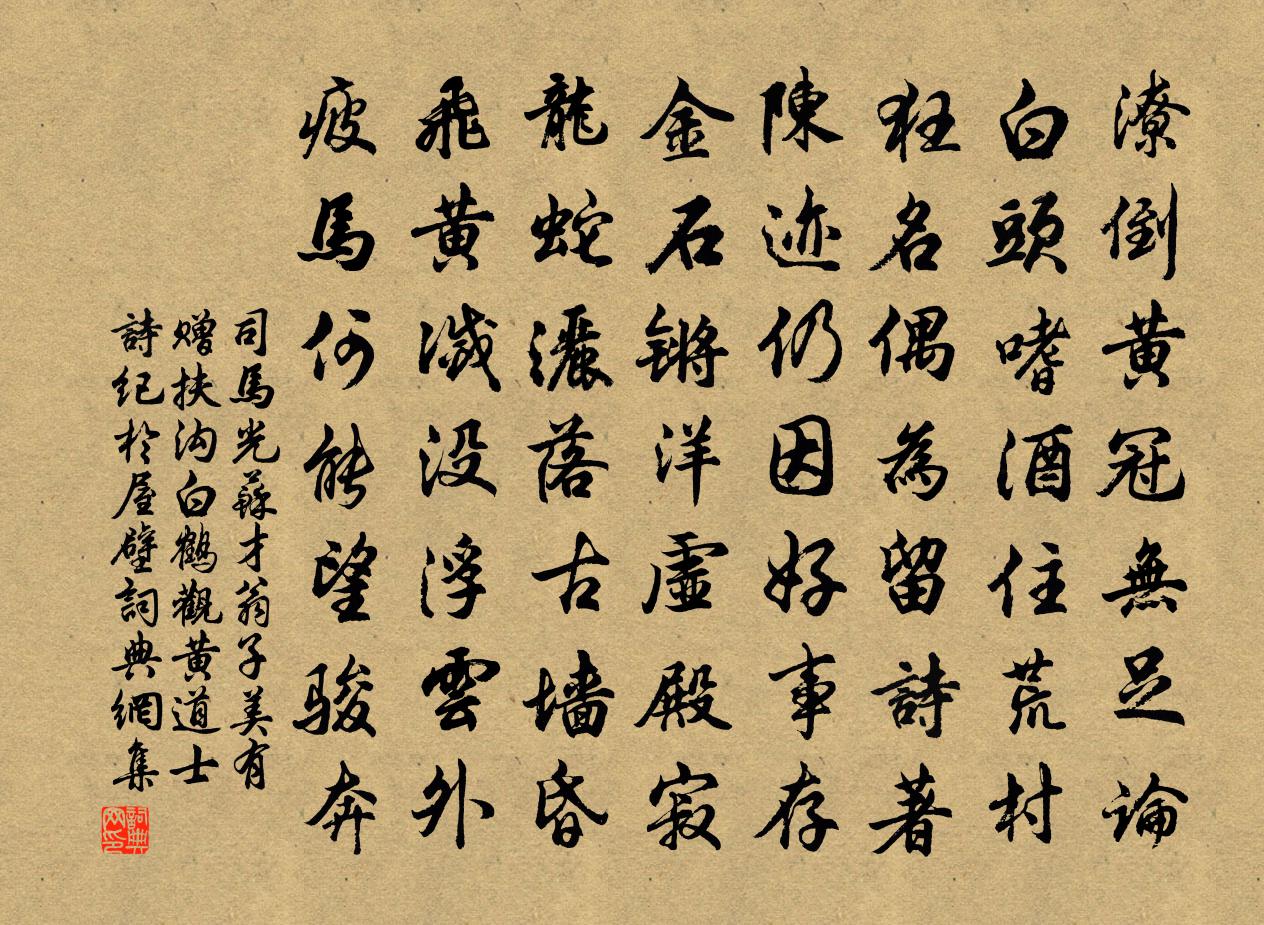 潦倒黄冠無足論
白頭嗜酒住荒村
狂名偶為留詩著
陳迹仍因好事存
金石锵洋虛殿寂
龍蛇灑落古墙昏
飛黄滅没浮雲外
疲馬何能望骏奔
司馬光蘇才翁子美有
赠扶沟白鶴觀黄道士
詩纪於屋壁詞典網集
詞典
网印